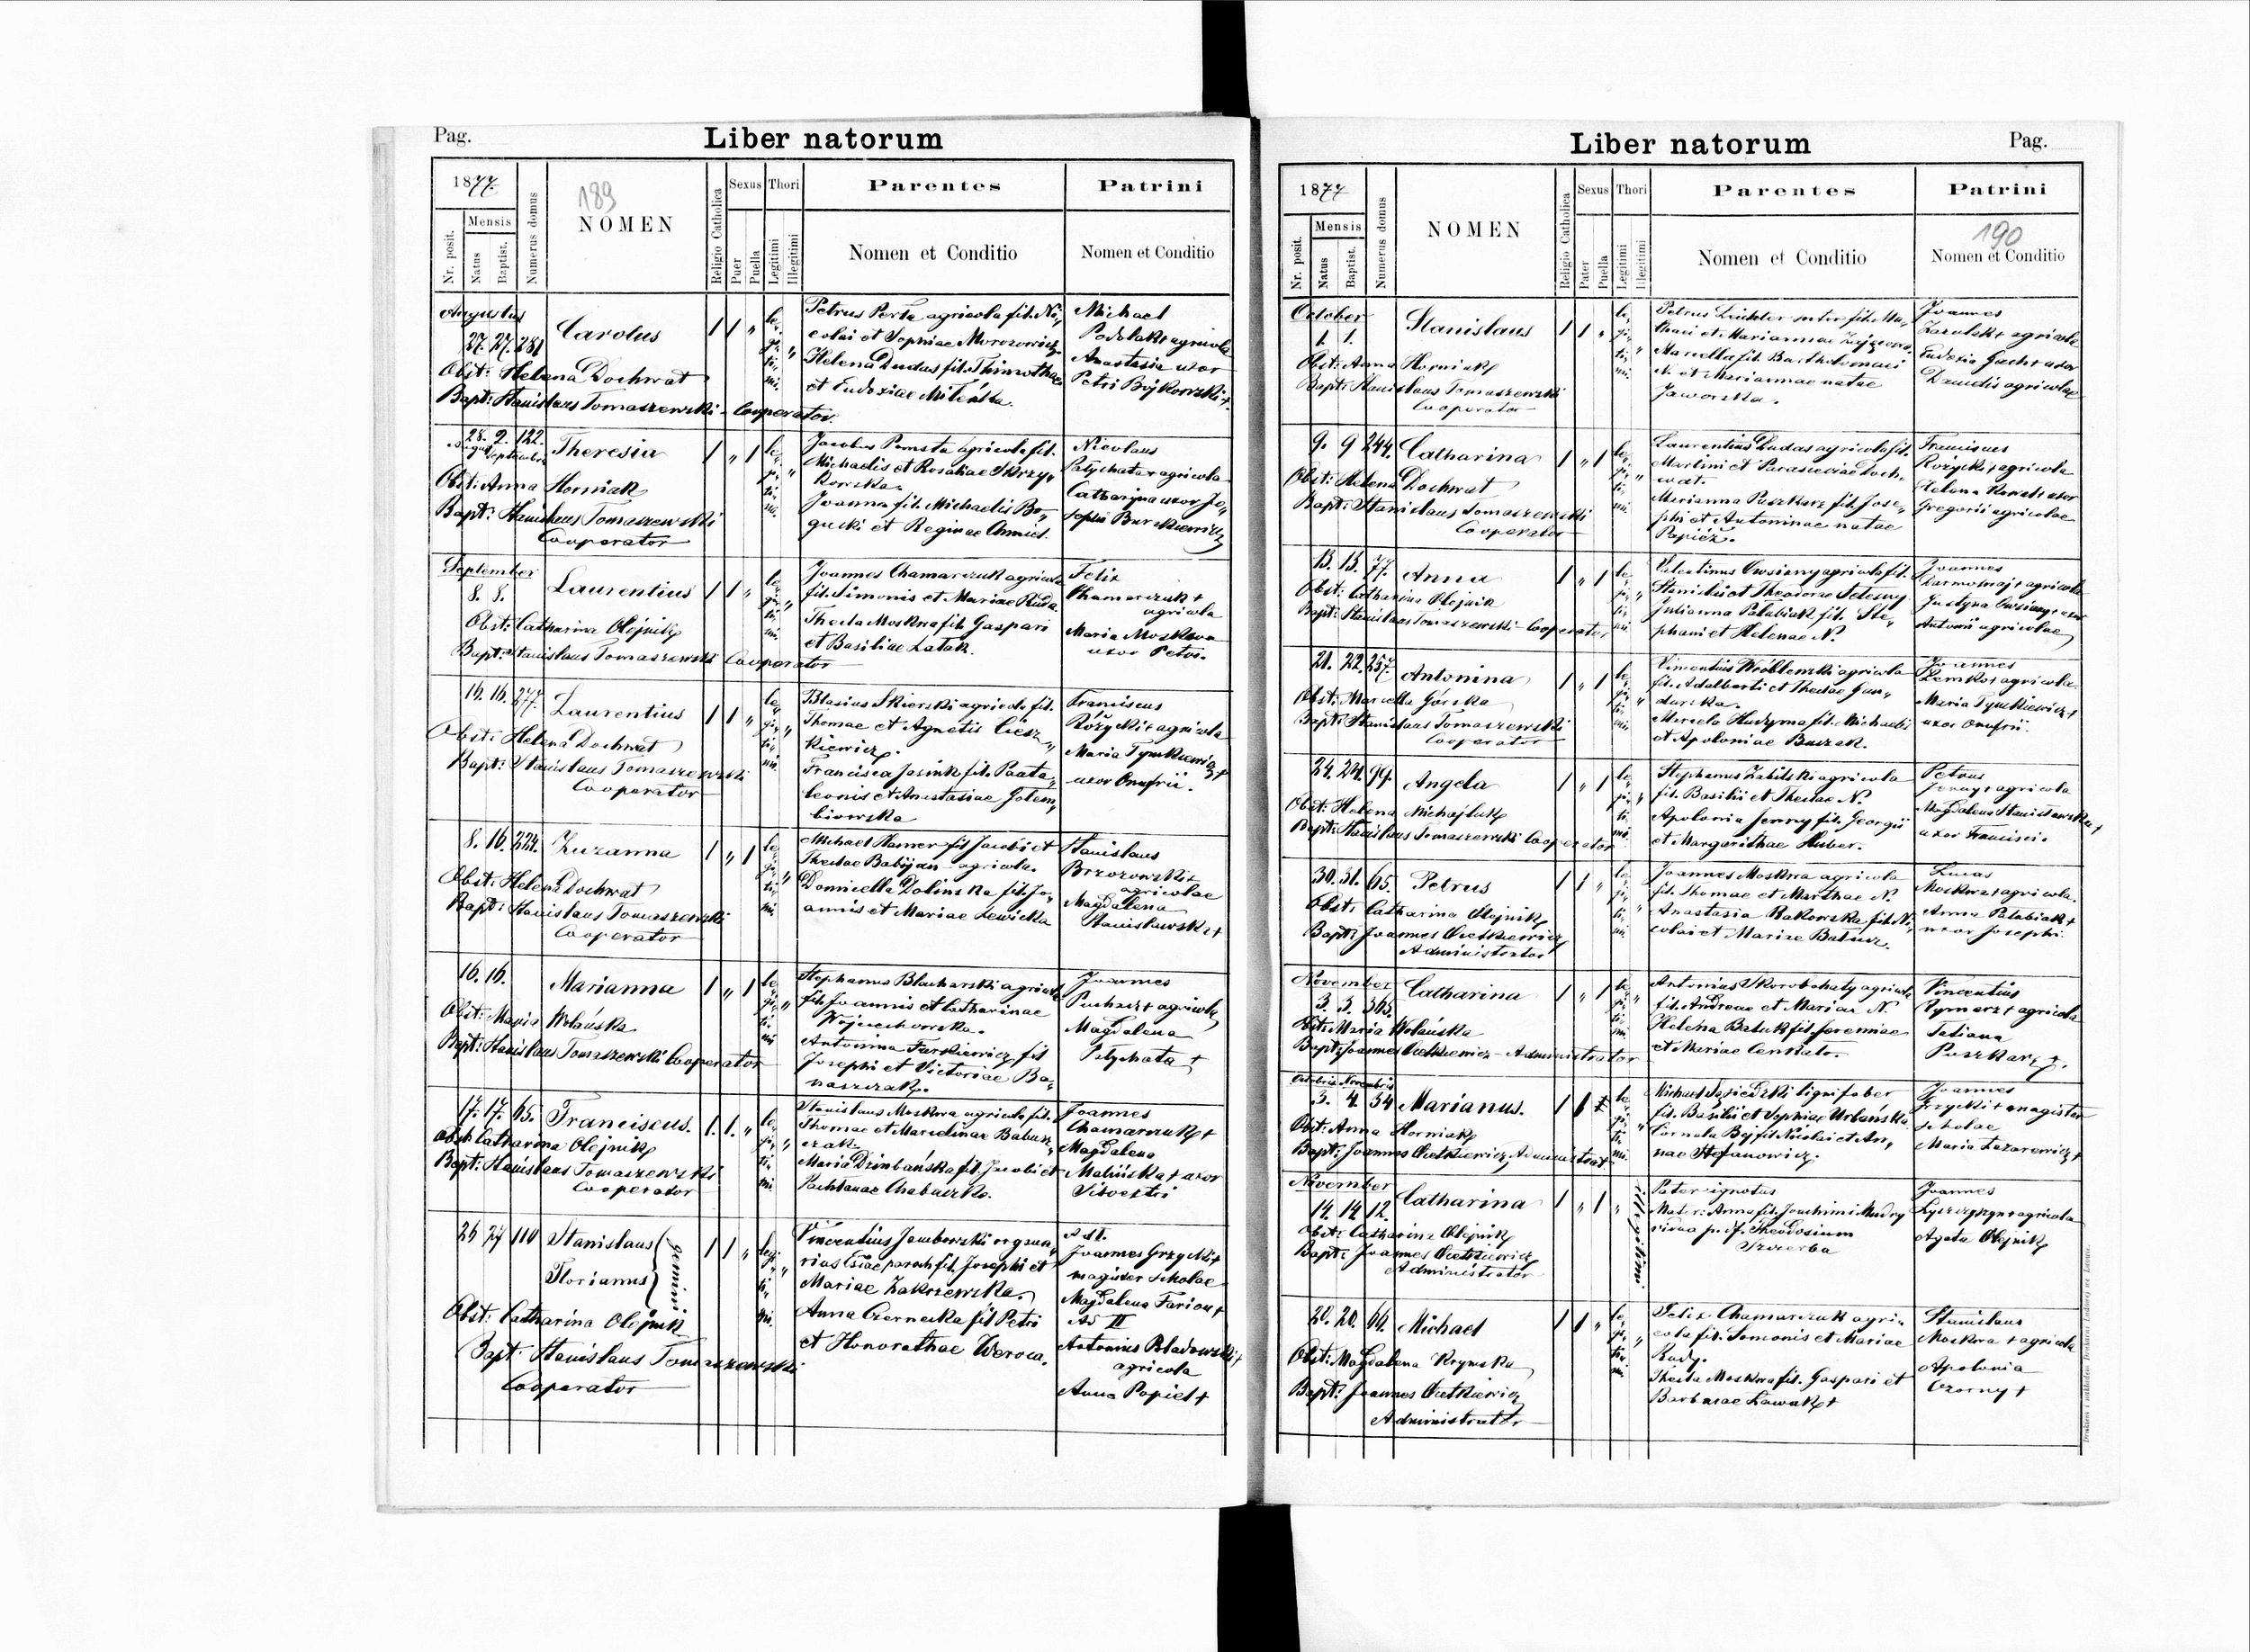 Pag.
Liber natorum
1877.
189
NOMEN
Religio Catholica
Sexus
Thori
Parentes
Patrini
Mensis
Nr. posit.
Natus
Baptist.
Numerus domus
Puer
Puella
Legitimi
Illegitimi
Nomen et Conditio
Nomen et Conditio
Augustus
27. 27. 281
Carolus
1 1 „
Petrus Perla agricola fil. Ni„
colai et Sophiae Morozowicz
Helena Dudas fil. Thimothaei
et Eudoxiae
Michael
Podolak + agricola
Anastasia uxor
Petri Bykowski +
Obst: Helena Dochwat
Bapt: Stanislaus Tomaszewski - Cooperator.
28. 2. 122.
Augusti Septembris
Theresia
1 „ 1
Jacobus agricola fil.
Michaelis et Rosaliae Skrzy„
kowska.
Joanna fil. Michaelis Bo„
gucki et Reginae Chmiel.
Nicolaus
Patychata + agricola
Catharina uxor Jo„
sephi
Obst: Anna Horniak
Bapt: Stanislaus Tomaszewski
Cooperator
September
8. 8.
Laurentius
1 1 „
Joannes Chamarczuk agricola
fil. Simonis et Mariae Ruda.
Thecla Moskwa fil. Gaspari
et Basiliae Łatak.
Felix
Chamarczuk +
agricola
Maria Moskwa
uxor Petri.
Obst: Catharina Olejnik
Bapt: Stanislaus Tomaszewski Cooperator
16. 16. 277.
Laurentius
1 1 „
Blasius Skierski agricola fil.
Thomae et Agnetis Ciesz„
kiewicz.
Francisca Jasink fil. Panta„
leonis et Anastasiae Gołem„
biowska
Franciscus
Różycki + agricola
Maria Tymkiewicz +
uxor Onufrii.
Obst: Helena Dochwat
Bapt: Stanislaus Tomaszewski
Cooperator
8. 16. 224.
Zuzanna
1 „ 1
Michael Hamer fil Jacobi et
Theclae Babijan agricola.
Domicella Dolinska fil. Jo„
annis et Mariae Lewicka
Stanislaus
Brzozowski +
agricolae
Magdalena
Stanisławska +
Obst: Helena Dochwat
Bapt: Stanislaus Tomaszewski
Cooperator
16. 16.
Marianna
1 „ 1
Stephanus Blacharski agricola
fil. Joannis et Catharinae
Wojciechowska.
Antonina Farkiewicz fil
Josephi et Victoriae Ba„
naszczak.
Joannes
Puchacz + agricola
Magdalena
Patychata +
Obst: Maria Wolańska
Bapt: Stanislaus Tomaszewski Cooperator
17. 17. 65.
Franciscus.
1. 1. „
Stanislaus Moskwa agricola fil.
Thomae et Marcelinae Babusz„
czak.
Maria Dzinbańska fil. Jacobi et
Pachtanae Chabaczko.
Joannes
Chamarczuk +
Magdalena
Malińska + uxor
Silvestri
Obst: Catharina Olejnik
Bapt: Stanislaus Tomaszewski
Cooperator
26 27 110
Stanislaus
Florianus
gemini
1 1 „
Vincentius Jaworski organa„
rius Ecclae paroch fil. Josephi et
Mariae Zakrzewska.
Anna Czernecka fil Petri
et Honorathae Weroca.
Ad I.
Joannes Grzycki +
magister scholae
Magdalena Farion +
Ad II
Antonius Bladowski +
agricola
Anna Popiel +
Obst: Catharina Olejnik
Bapt: Stanislaus Tomaszewski
Cooperator
Liber natorum
Pag.
1877
NOMEN
Religio Catholica
Sexus
Thori
Parentes
Patrini
190
Mensis
Nr. posit.
Natus
Baptist.
Numerus domus
Pater
Puella
Legitimi
Illegitimi
Nomen et Conditio
Nomen et Conditio
October
1. 1.
Stanislaus
1 1 „
Petrus Leichter sutor fil. Ma„
thaei et Mariannae
Marcella fil. Bartholomaei
N. et Mariannae natae
Jaworska.
Joannes
Zarulski + agricola
Eudoxia Gach + uxor
agricolae
Obst: Anna Horniak
Bapt: Stanislaus Tomaszewski
Cooperator
9. 9 244.
Catharina
1 „ 1
Laurentius Dudas agricola fil.
Martini et Parasceviae Doch„
wat.
Marianna Puszkarz fil. Jose„
phi et Antoninae natae
Papież.
Franciscus
Rozycki + agricola
Helena Kowal + uxor
Gregorii agricolae
Obst: Helena Dochwat
Bapt: Stanislaus Tomaszewski
Cooperator
13. 13. 77.
Anna
1 „ 1
Valentinus Owsiany agricola fil.
Stanislai et Theodorae
Julianna Palubiak fil. Ste„
phani et Helenae N.
Joannes
agricola
Justyna Owsiany + uxor
Antonii agricolae
Obst: Catharina Olejnik
Bapt: Stanislaus Tomaszewski - Cooperator
21. 22. 257.
Antonina
1 „ 1
Vincentius Wróblewski agricola
fil. Adalberti et Theclae Gan„
durska.
Marcela Hudyma fil. Michaelis
et Apoloniae Buczak.
Joannes
Zemko + agricola
Maria Tymkiewicz +
uxor Onufrii.
Obst: Marcella Górska
Bapt: Stanislaus Tomaszewski
Cooperator
24. 24. 99.
Angela
1 „ 1
Stephanus Zabilski agricola
fil. Basilii et Theclae N.
Apolonia Jenny fil. Georgii
et Margarithae Huber.
Petrus
Jenny + agricola
Magdalena Stanisławska +
uxor Francisci.
Obst: Helena Michajluk
Bapt: Stanislaus Tomaszewski Cooperator
30. 31. 65.
Petrus
1 1 „
Joannes Moskwa agricola
fil. Thomae et Marthae N.
Anastasia Rakowska fil. Ni„
colai et Mariae Batiuz.
Lucas
Moskwa + agricola.
Anna Palabiak +
uxor Josephi.
Obst: Catharina Olejnik
Bapt: Joannes Cietkiewicz
Administrator
November
3. 3. 365.
Catharina
1 „ 1
Antonius Skorobohaty agricola
fil. Andreae et Mariae N.
Helena Batuk fil. Jeremiae
et Mariae Cenkało.
Vincentius
Rymarz + agricola
Tatiana
Puszkarz +.
Obst: Maria Wolańska
Bapt: Joannes Cietkiewicz - Administrator
Octobris Novembris
3. 4. 34
Marianus.
Michael Sasiedzki lignifaber
fil. Basilii et Sophiae Urbańska.
Cornela Bej fil. Nicolai et An„
nae Stefanowicz.
Joannes
Grzycki + magister
scholae
Maria Łazarewicz +
Obst: Anna Horniak
Bapt: Joannes Cietkiewicz, Administrator
November
14. 14 12.
Catharina
1 „ 1 „
illegitimi
Pater ignotus
Mater: Anna fil. Joachimi Mudry
vidua p. df. Theodosium
Szczerba
Joannes
Łyszczyszyn + agricola
Agata Olejnik
Obst: Catharina Olejnik
Bapt: Joannes Cietkiewicz
Administrator
20. 20. 66.
Michael
1 1 „
Felix Chamarczuk agri„
cola fil. Simonis et Mariae
Rudy.
Thecla Moskwa fil. Gaspari et
Barbarae Ławak +
Stanislaus
Moskwa + agricola
Apolonia
Czorny +
Obst: Magdalena Krymska
Bapt: Joannes Cietkiewicz
Administrator